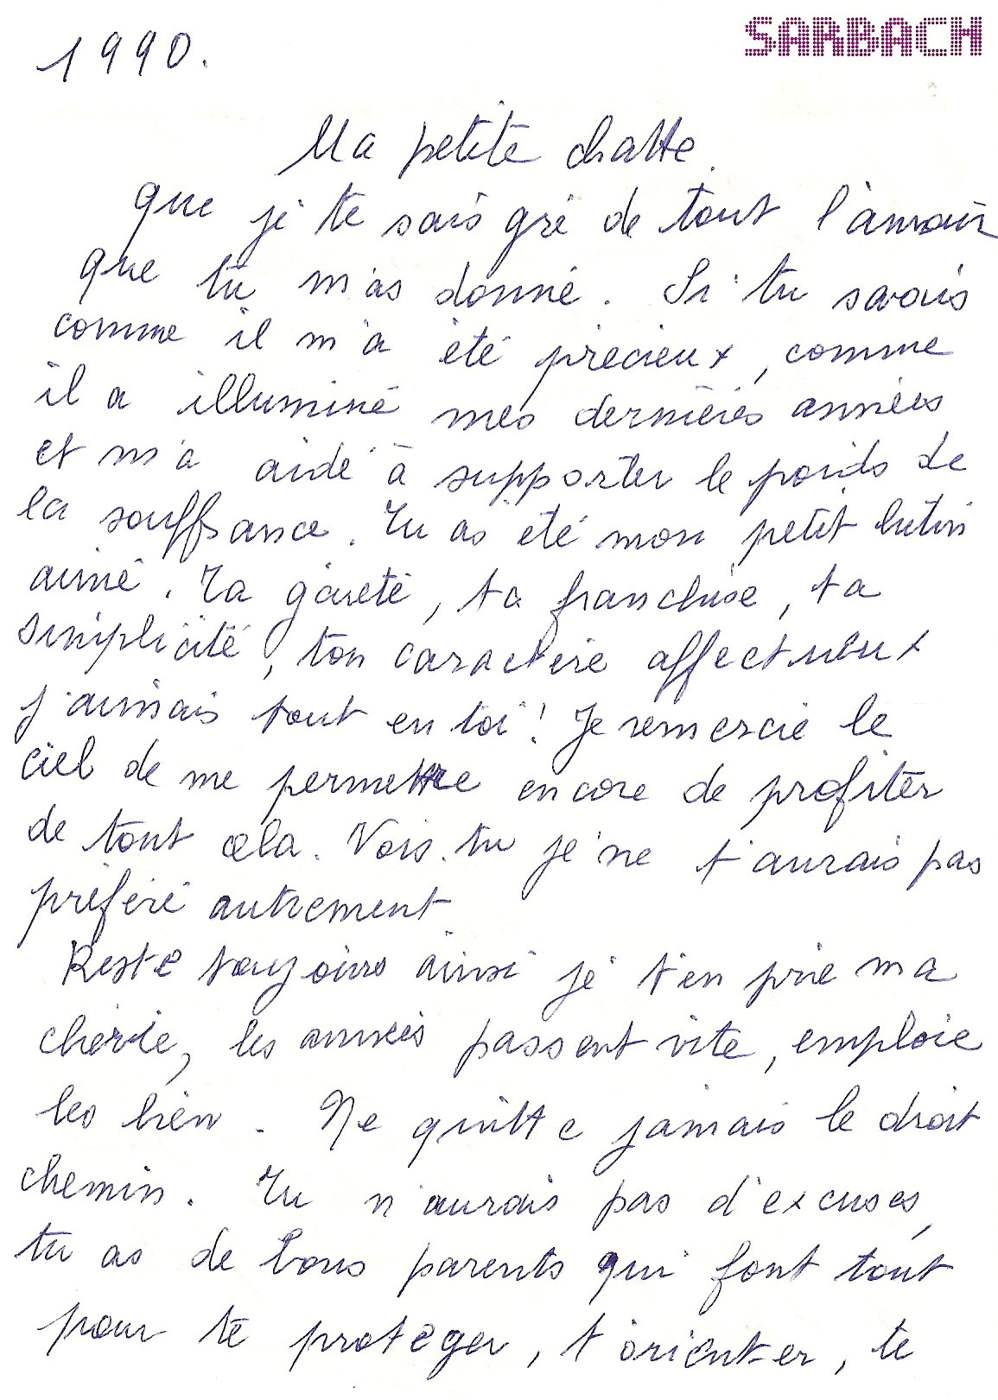 SARBACH
1990.
Ma petite chatte.
que je te sais gré de tout l'amour
que tu m'as donné. Si tu savais
comme il m'a été précieux, comme
il a illuminé mes dernières années
et m'a aidé à supporter le poids de
la souffrance. Tu as été mon petit lutin
aimé. Ta gaieté, ta franchise, ta
simplicité, ton caractère affectueux
j'aimais tout en toi! Je remercie le
ciel de me permettre encore de profiter
de tout cela. Vois-tu je ne t'aurais pas
préféré autrement
Reste toujours ainsi je t'en prie ma
chérie, les années passent vite, emploie
les bien. Ne quitte jamais le droit
chemin. Tu n'aurais pas d'excuses,
tu as de bons parents qui font tout
pour te protéger, t'orienter, te